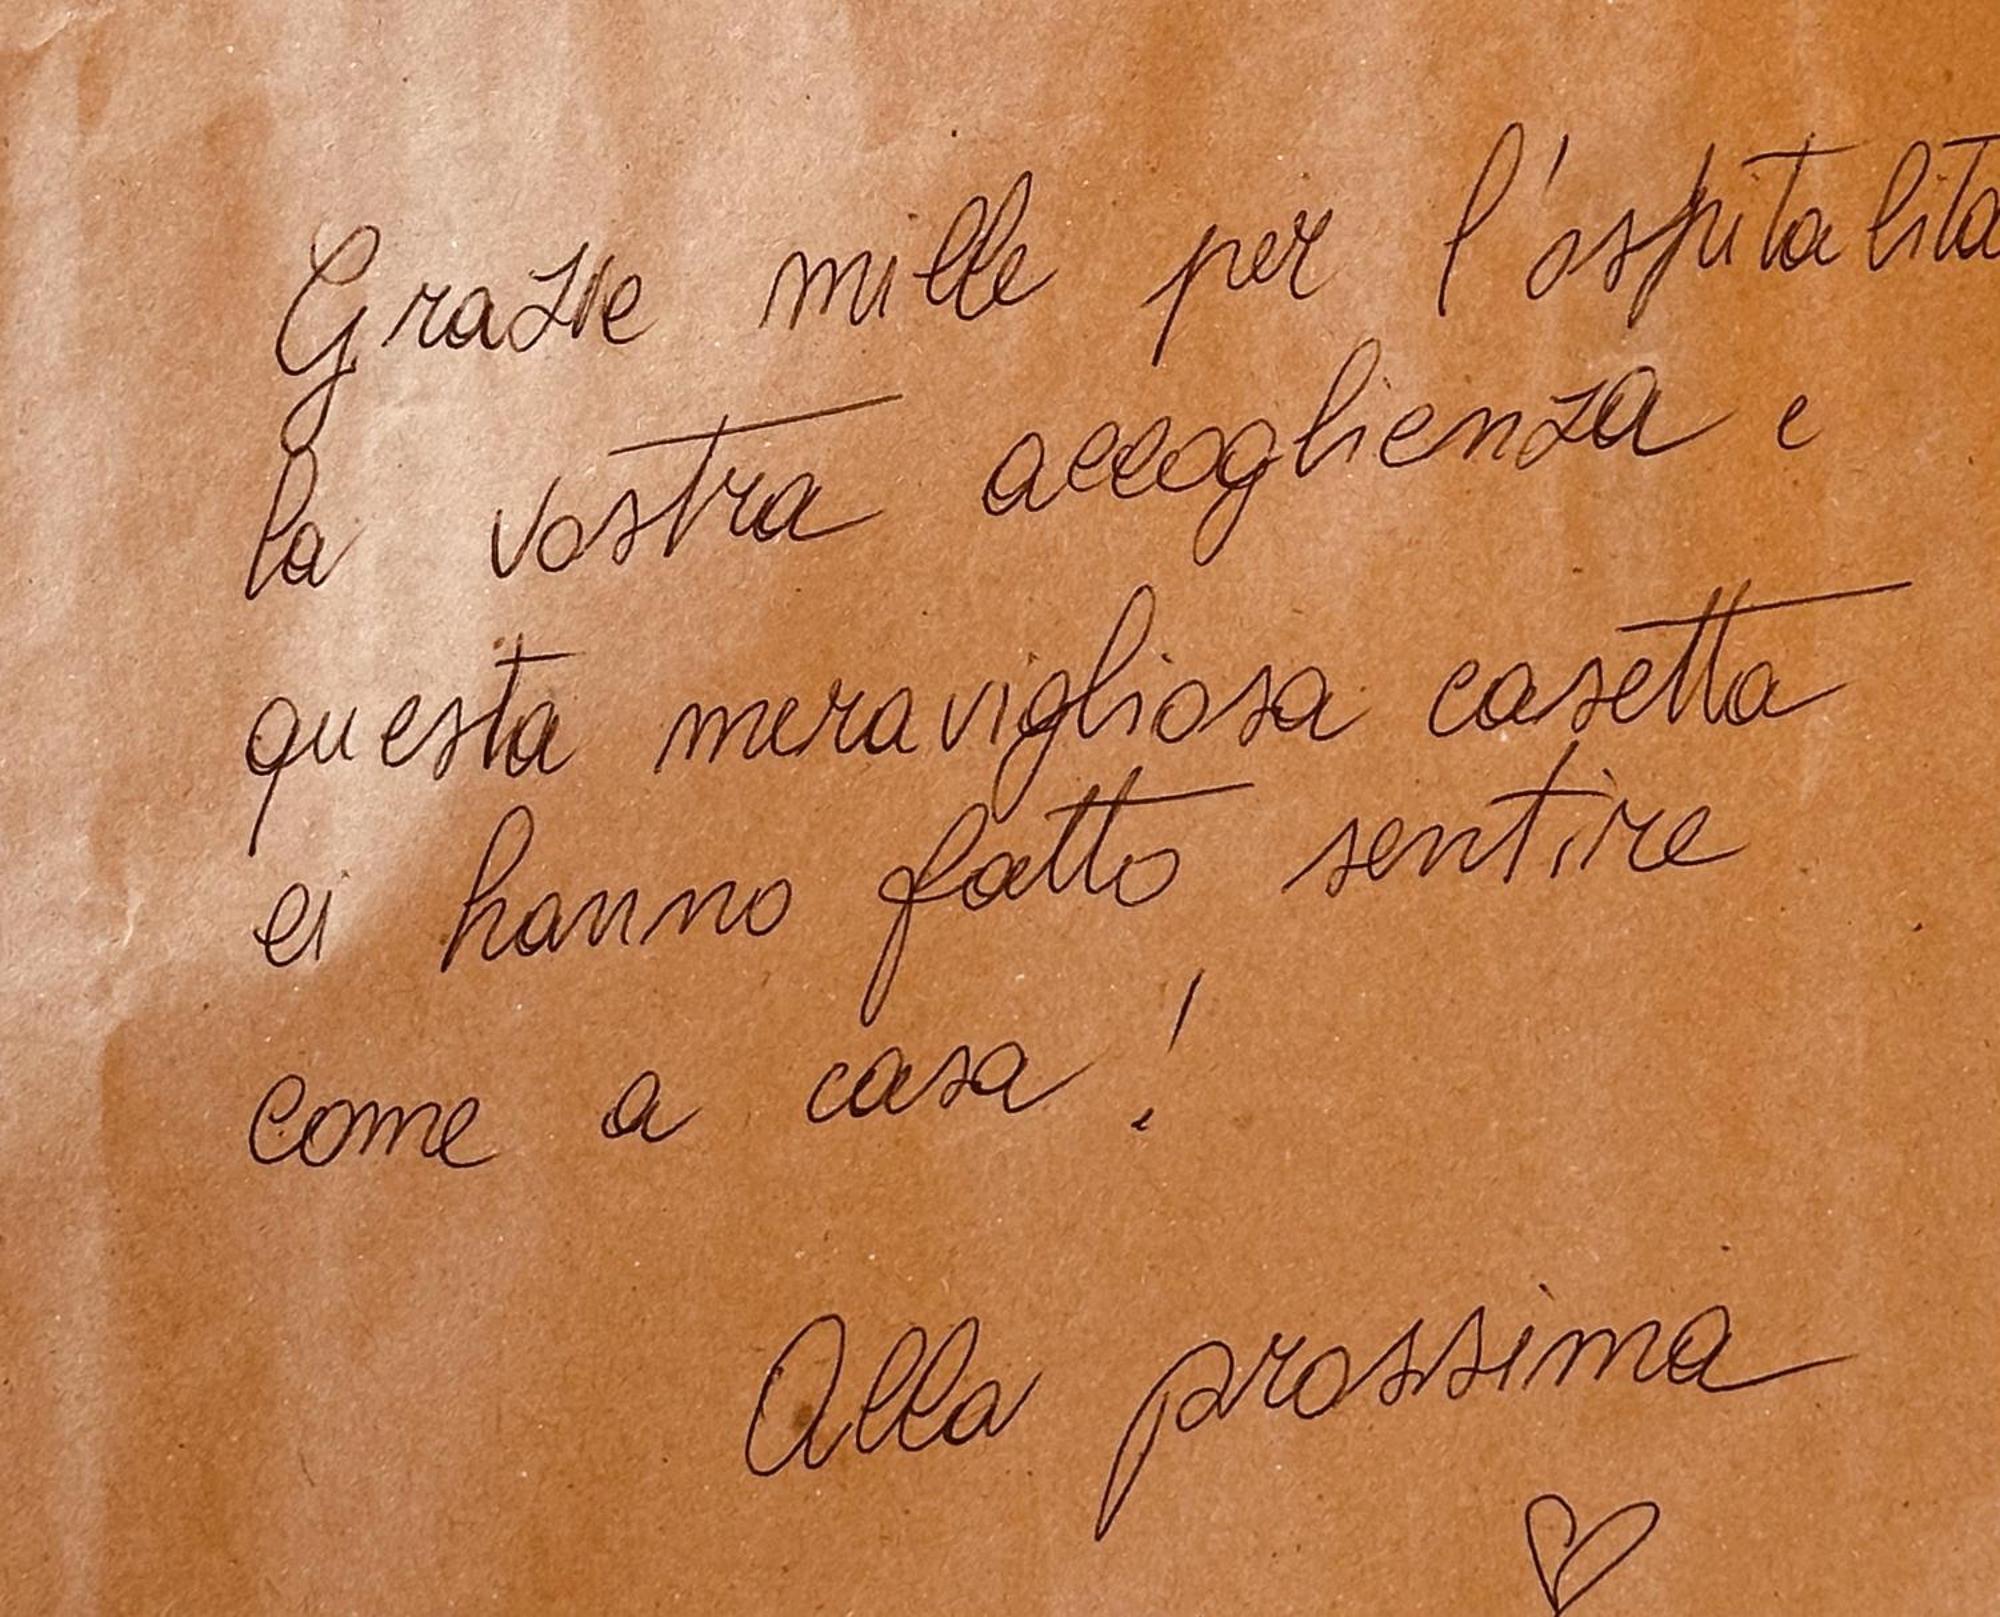 Grazie mille per l'ospitalità
la vostra accoglienza e
questa meravigliosa casetta
ci hanno fatto sentire
come a casa!
Alla prossima